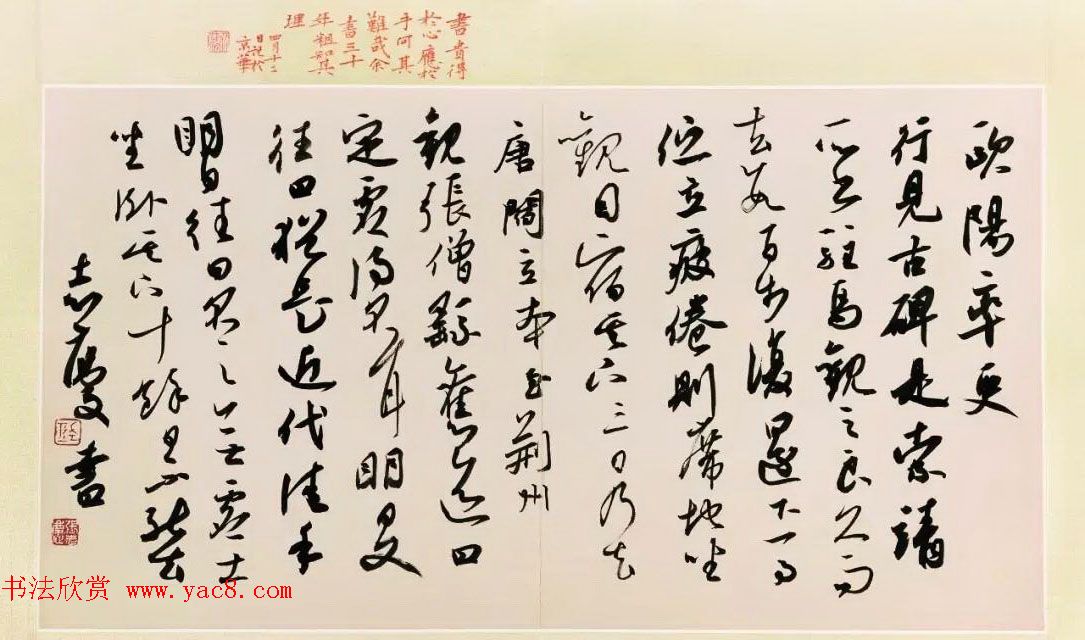 書貴得
於心應於
手何其
難哉余
書三十
年粗知其
理
四月十二
日記於
京華
歐陽率更
行見古碑是索靖
所書駐馬觀之良久而
去數百步復還下馬
佇立疲倦則席地坐
觀因宿其下三日乃去
唐閻立本至荊州
觀張僧繇舊迹曰
定虛得名耳明日又
往曰猶是近代佳手
明日往曰名下無虛士
坐臥其下十餘日不能去
志慶書
书法欣赏 www.yac8.com